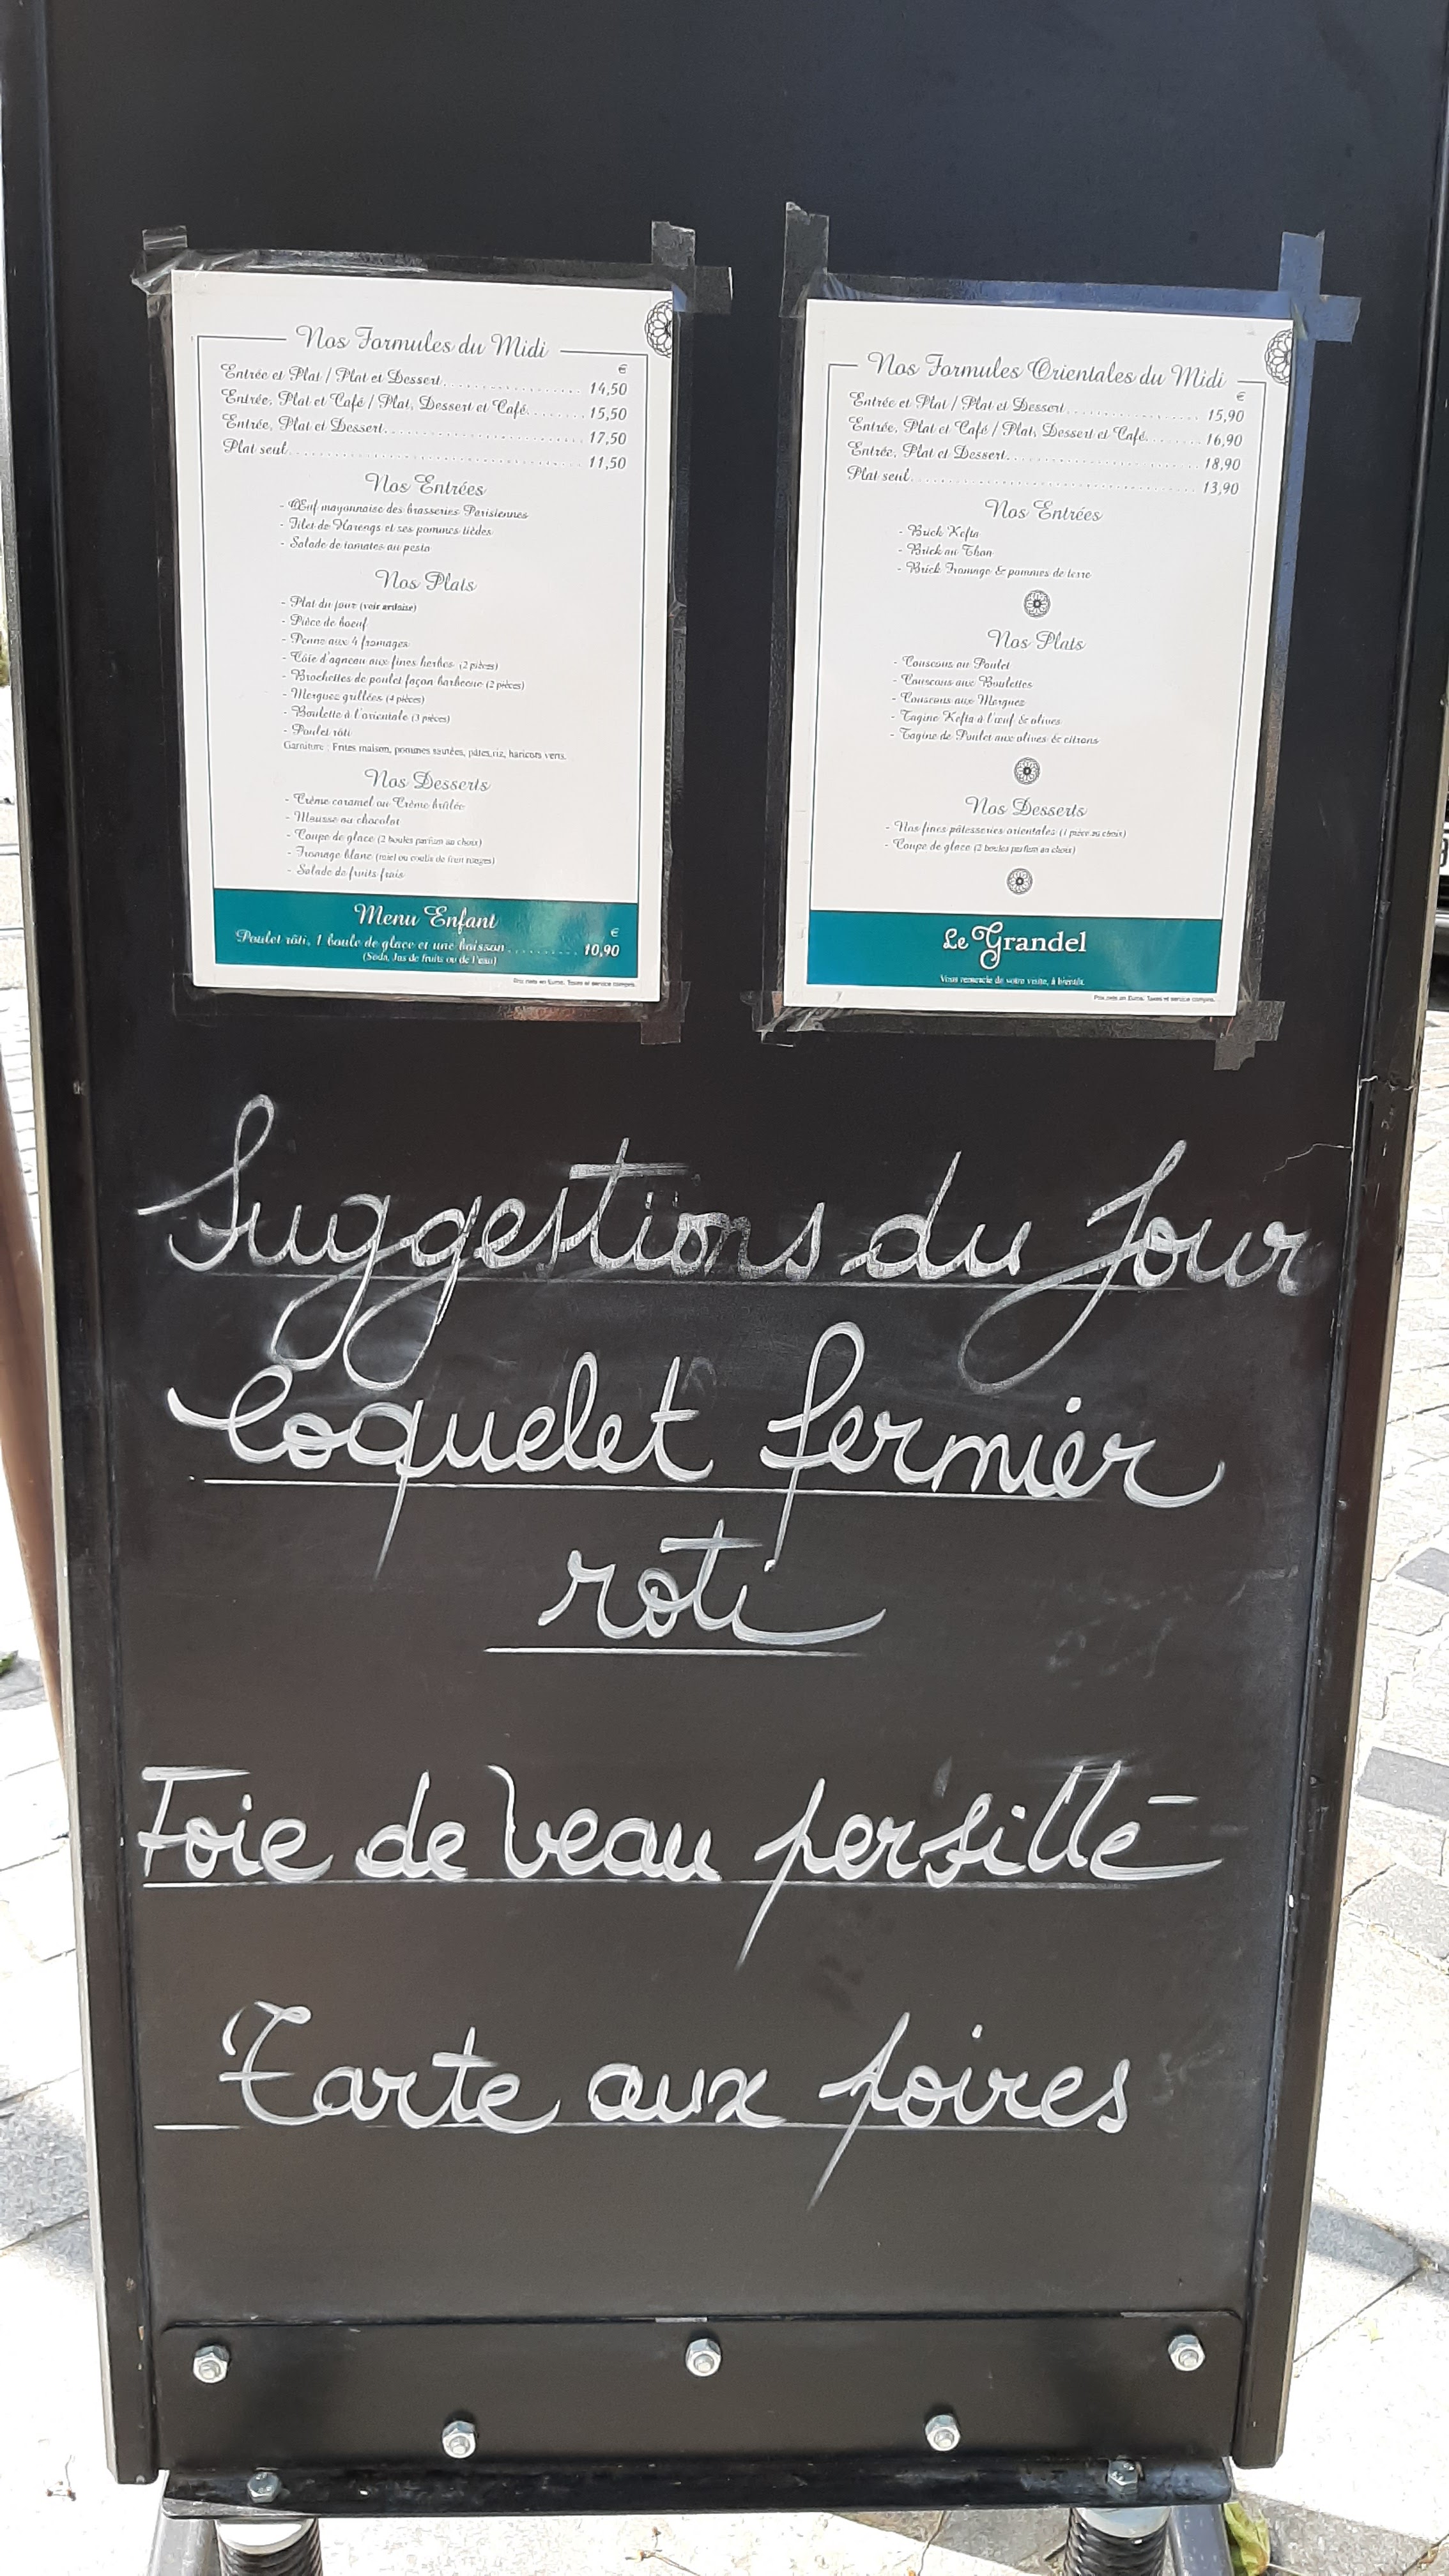 Nos Formules du Midi
€
Entrée et Plat / Plat et Dessert.............................. 14,50
Entrée, Plat et Café / Plat, Dessert et Café........ 15,50
Entrée, Plat et Dessert........................................ 17,50
Plat seul............................................................. 11,50
Nos Entrées
- Œuf mayonnaise des brasseries Parisiennes
- Filet de Harengs et ses pommes tièdes
- Salade de tomates au pesto
Nos Plats
- Plat du jour (voir ardoise)
- Pièce de boeuf
- Penne aux 4 fromages
- Côte d'agneau aux fines herbes (2 pièces)
- Brochettes de poulet façon barbecue (2 pièces)
- Merguez grillées (4 pièces)
- Boulette à l'orientale (3 pièces)
- Poulet rôti
Garniture : Frites maison, pommes sautées, pâtes, riz, haricots verts.
Nos Desserts
- Crème caramel ou Crème brûlée
- Mousse au chocolat
- Coupe de glace (2 boules parfum au choix)
- Fromage blanc (miel ou coulis de fruit rouges)
- Salade de fruits frais
Menu Enfant
€
Poulet rôti, 1 boule de glace et une boisson.......... 10,90
(Soda, Jus de fruits ou de l'eau)
Prix nets en Euros. Taxes et service compris.
Nos Formules Orientales du Midi
€
Entrée et Plat / Plat et Dessert.............................. 15,90
Entrée, Plat et Café / Plat, Dessert et Café........ 16,90
Entrée, Plat et Dessert........................................ 18,90
Plat seul............................................................. 13,90
Nos Entrées
- Brick Kefta
- Brick au Thon
- Brick Fromage & pommes de terre
Nos Plats
- Couscous au Poulet
- Couscous aux Boulettes
- Couscous aux Merguez
- Tagine Kefta à l'œuf & olives
- Tagine de Poulet aux olives & citrons
Nos Desserts
- Nos fines pâtisseries orientales (1 pièce au choix)
- Coupe de glace (2 boules parfum au choix)
Le Grandel
Vous remercie de votre visite, à bientôt.
Prix nets en Euros. Taxes et service compris.
Suggestions du Jour
Coquelet fermier
roti
Foie de Veau persillé
Tarte aux poires